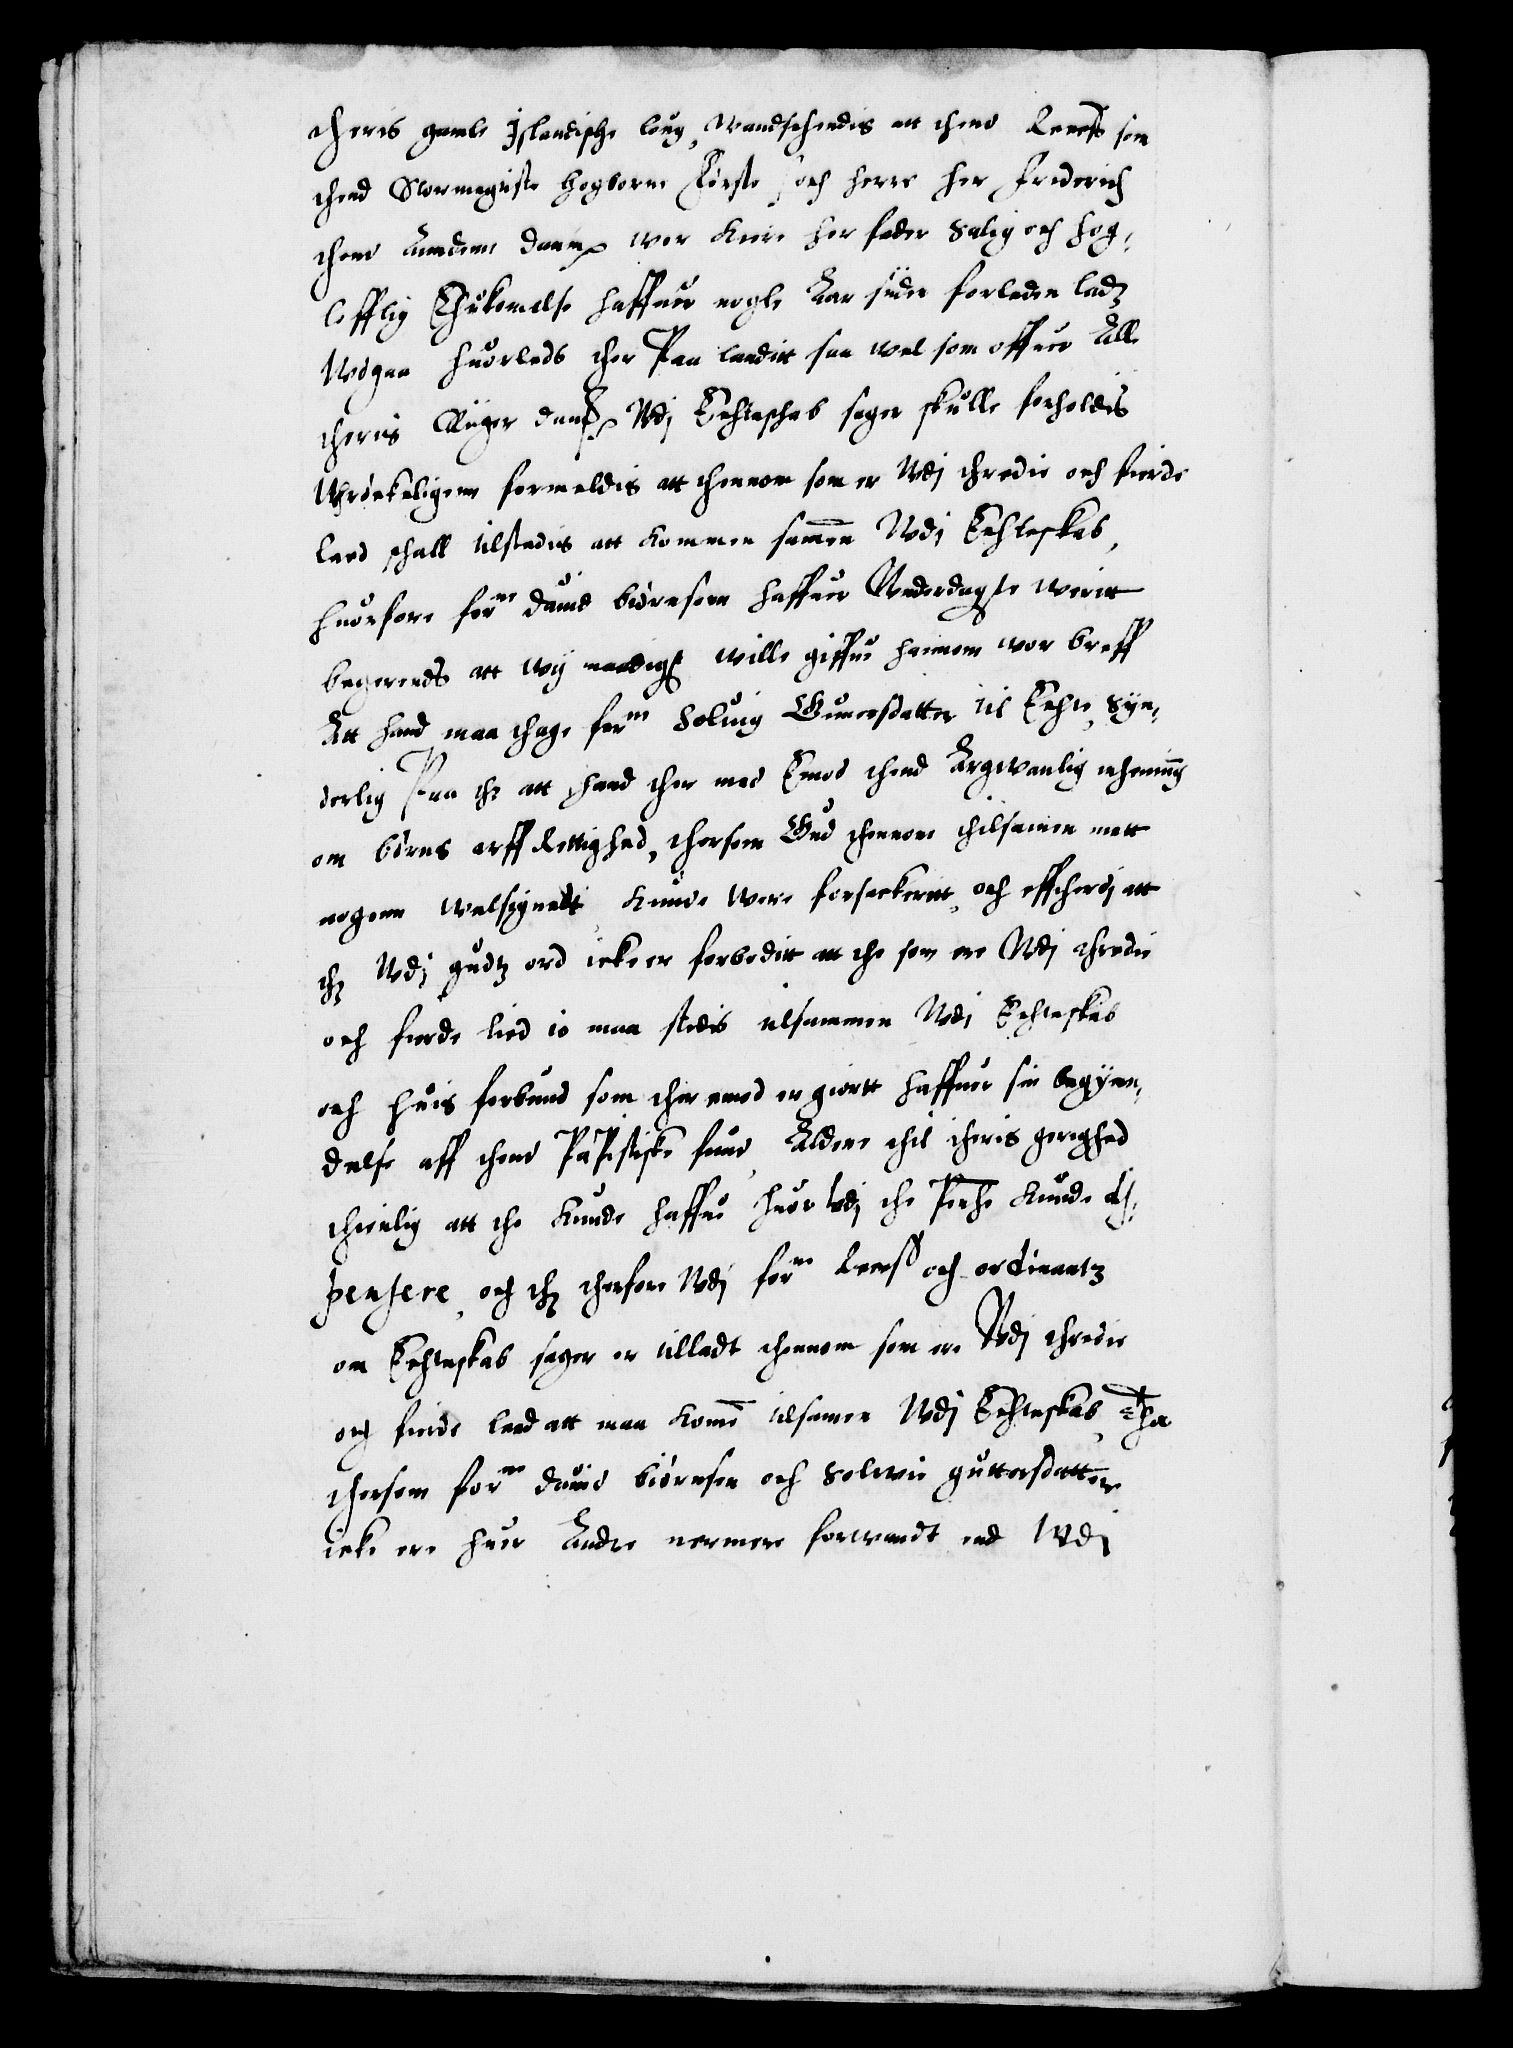 theris gamle Islandische loug, uandsehendis att thend Recess som
thend Stormegtiste hogborne Første och herre her Frederich
thend Anden Danm wor kiere her fader Salig och hog,
lofflig Ihukomelse haffuer nogle Aar siden forleden ladz
Wdgaa huorleds ther Paa landitt saa wel som offuer Alle
theris Riiger Danm Wdj Echteschab sager skulle forholdis
Wdrøckeligenn formeldis att thennom som er Wdj thredie och fierde
leed schall tilstedis att kommen samen Wdj Echteskab,
huorfore for^ne Dauid biørnsenn haffuer Wnderdagste weritt
begerends att wij naadigst wille giffue hannom wor breff
Att hand maa thage for^ne Soluig Gunersdatter til Echte, Syn,
derlig Paa thz att hand ther med Emod thend Argwanlig mhening
om børns arff Rettighed, thersom Gud thennom thilsamen mett
nogenn welsignedt kunde were forseckeritt, och efftherdj att
thz Wdj gudtz ord icke er forbeditt att the som ere Wdj thredie
och fierde lied io maa stedis tilsammen Wdj Echteskab
och huis forbund som ther emod er giortt haffuer sin begÿnn,
delse aff thend Papistiske fund Aldene thil theris gerighed
thienlig att the kunde haffue huor Wdj the Penge kunde di,
pensere, och thz therfore Wdj for^ne Recess och ordinantz
om Echteskab sager er tilladt thennom som ere Wdj thredie
och fierde leed att maa komme tilsamen Wdj Echteskab, Tha
thersom for^ne Dauid biørnsen och Solwie guttersdatter
icke ere huer Andre nermere forwandt end Wdj